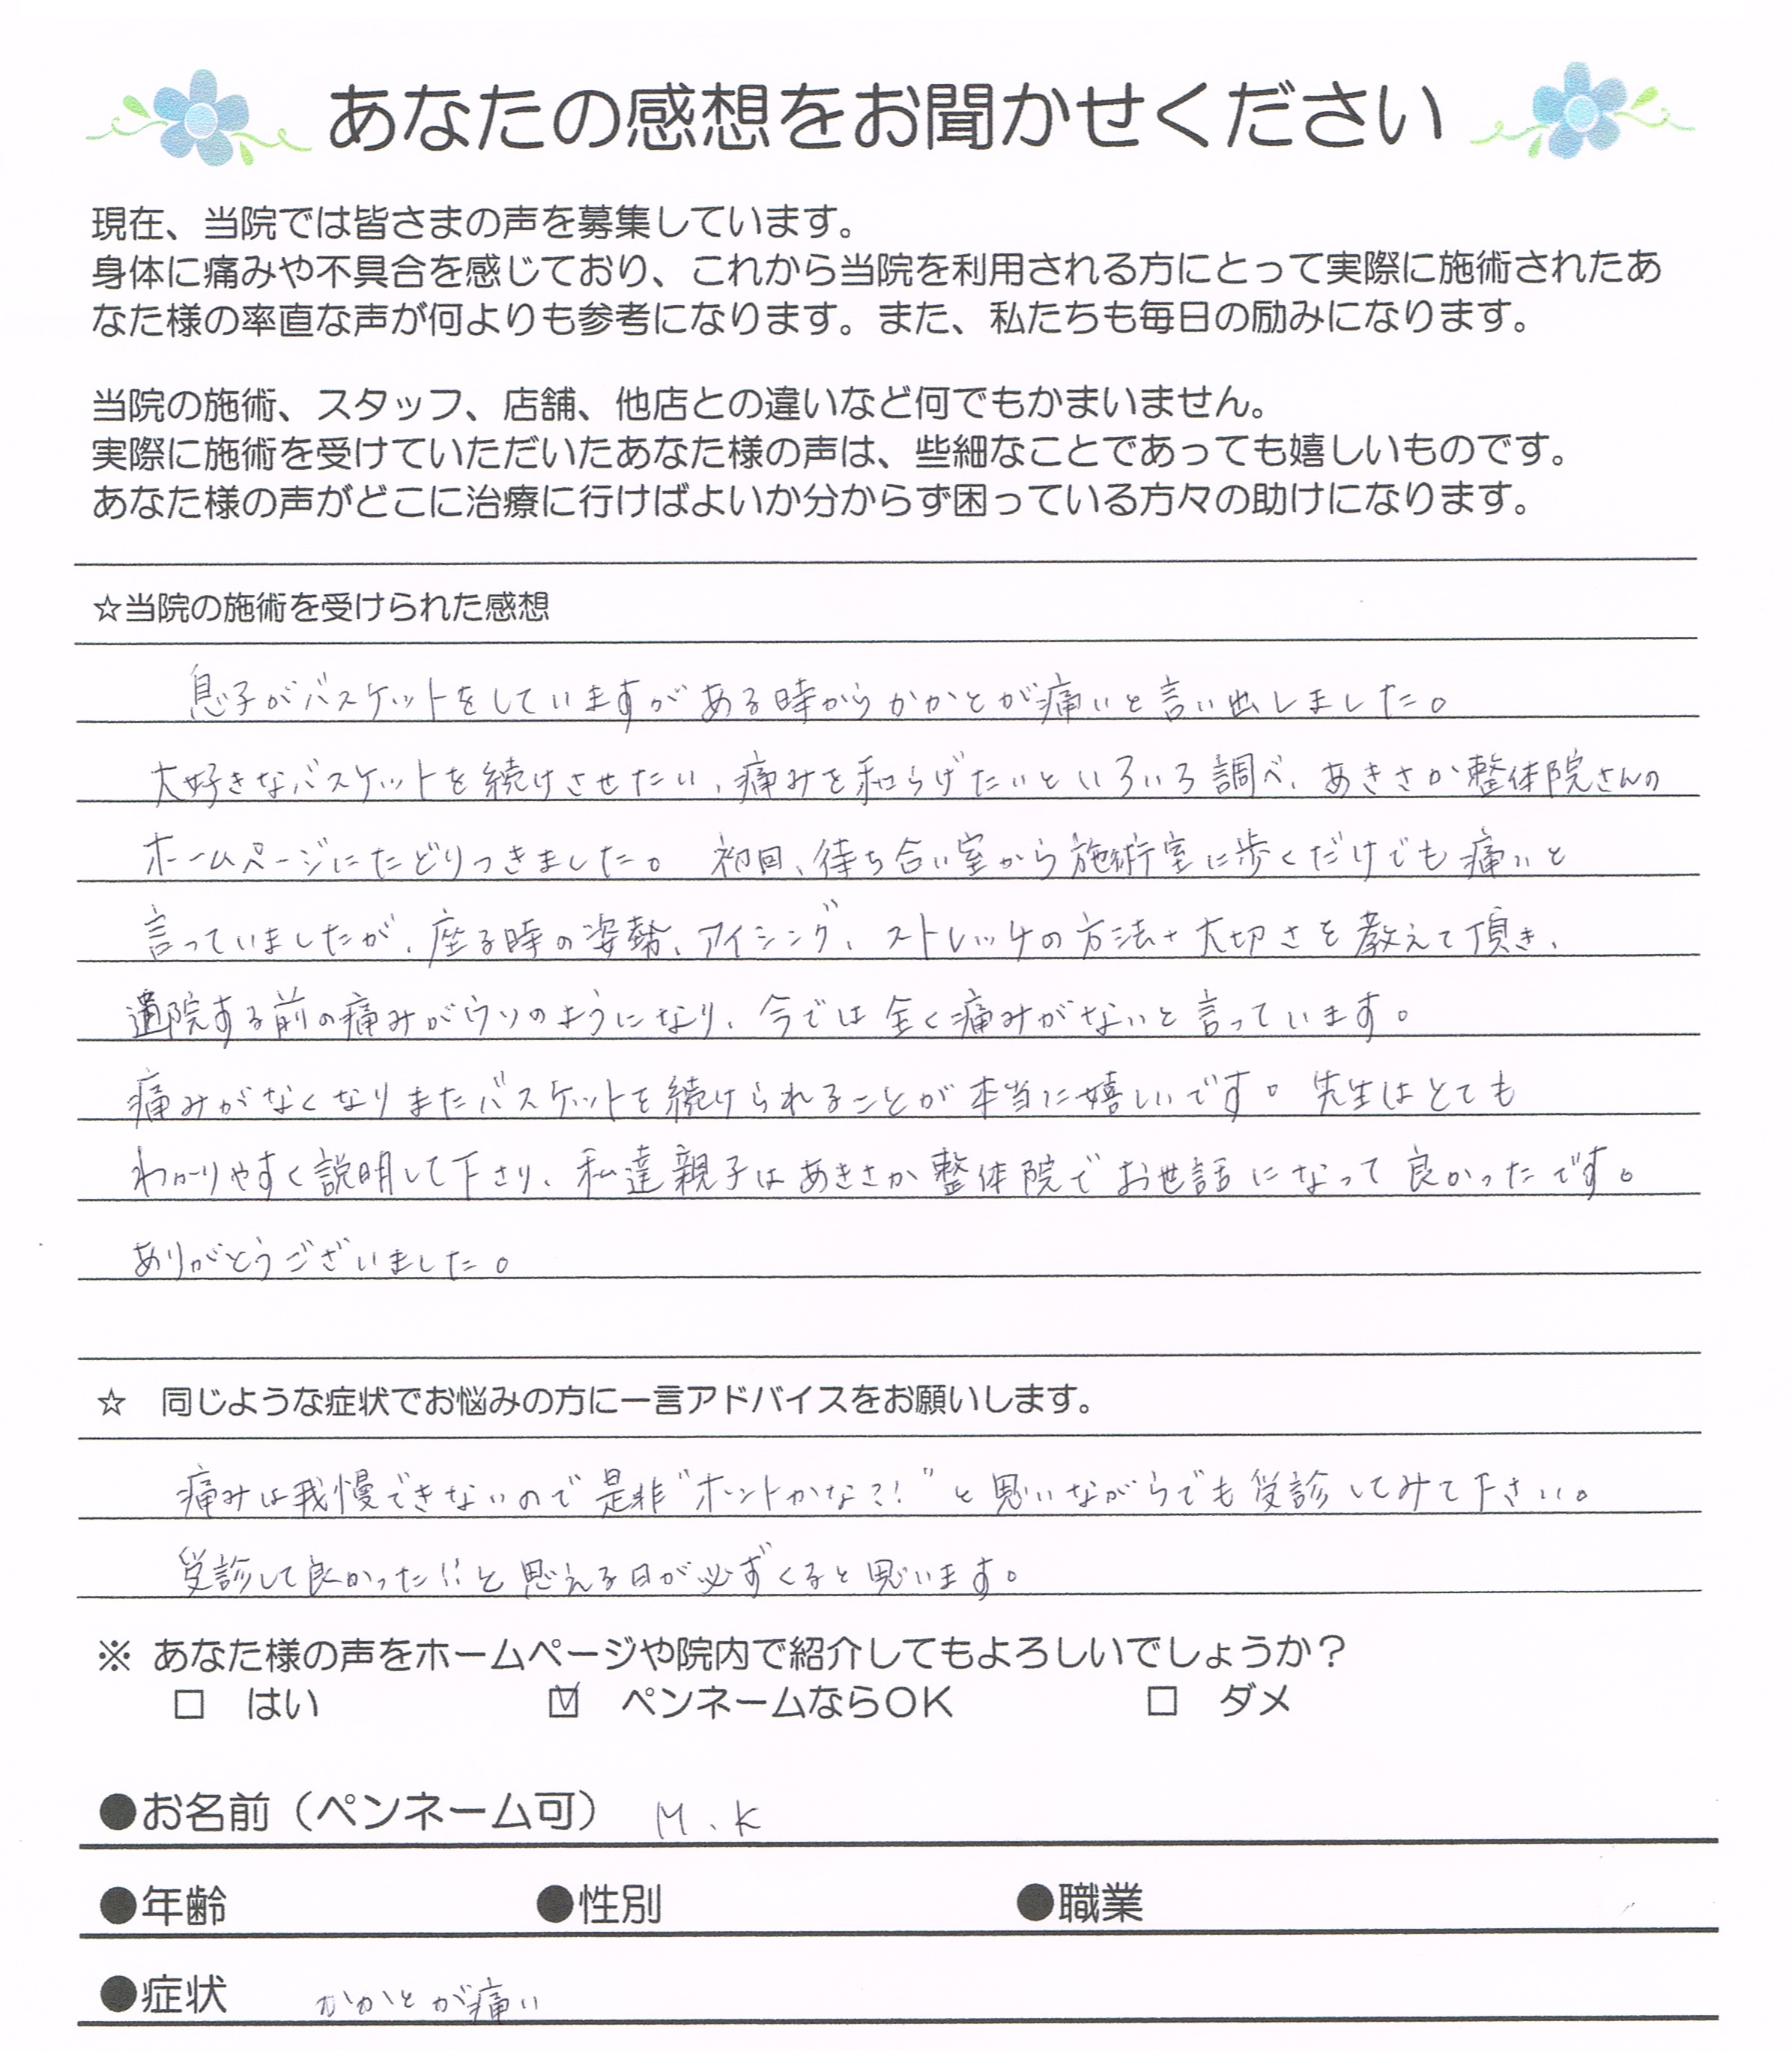 あなたの感想をお聞かせください
現在、当院では皆さまの声を募集しています。
身体に痛みや不具合を感じており、これから当院を利用される方にとって実際に施術されたあ
なた様の率直な声が何よりも参考になります。また、私たちも毎日の励みになります。
当院の施術、スタッフ、店舗、他店との違いなど何でもかまいません。
実際に施術を受けていただいたあなた様の声は、些細なことであっても嬉しいものです。
あなた様の声がどこに治療に行けばよいか分からず困っている方々の助けになります。
☆当院の施術を受けられた感想
息子がバスケットをしていますがある時からかかとが痛いと言い出しました。
大好きなバスケットを続けさせたい、痛みを和らげたいといろいろ調べ、あきさか整体院さんの
ホームページにたどりつきました。 初回、待ち合い室から施術室に歩くだけでも痛いと
言っていましたが、座る時の姿勢、アイシング、ストレッチの方法+大切さを教えて頂き、
通院する前の痛みがウソのようになり、今では全く痛みがないと言っています。
痛みがなくなりまたバスケットを続けられることが本当に嬉しいです。先生はとても
わかりやすく説明して下さり、私達親子はあきさか整体院でお世話になって良かったです。
ありがとうございました。
☆ 同じような症状でお悩みの方に一言アドバイスをお願いします。
痛みは我慢できないので是非"ホントかな?!"と思いながらでも受診してみて下さい。
受診して良かった!!と思える日が必ずくると思います。
※ あなた様の声をホームページや院内で紹介してもよろしいでしょうか？
□ はい ☑ ペンネームならOK □ ダメ
●お名前（ペンネーム可） M.K
●年齢 ●性別 ●職業
●症状 かかとが痛い